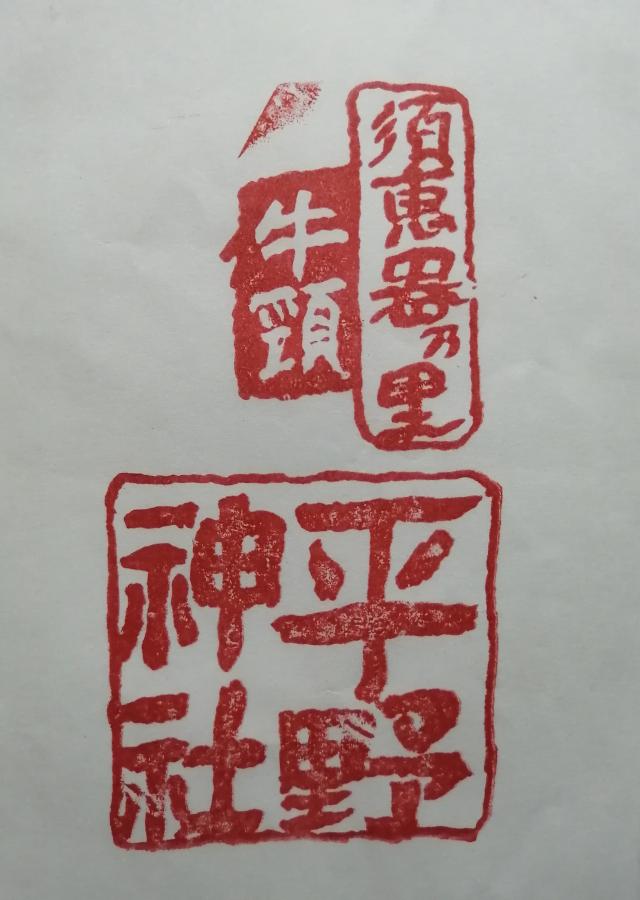 須恵器乃里
牛頸
平野
神社